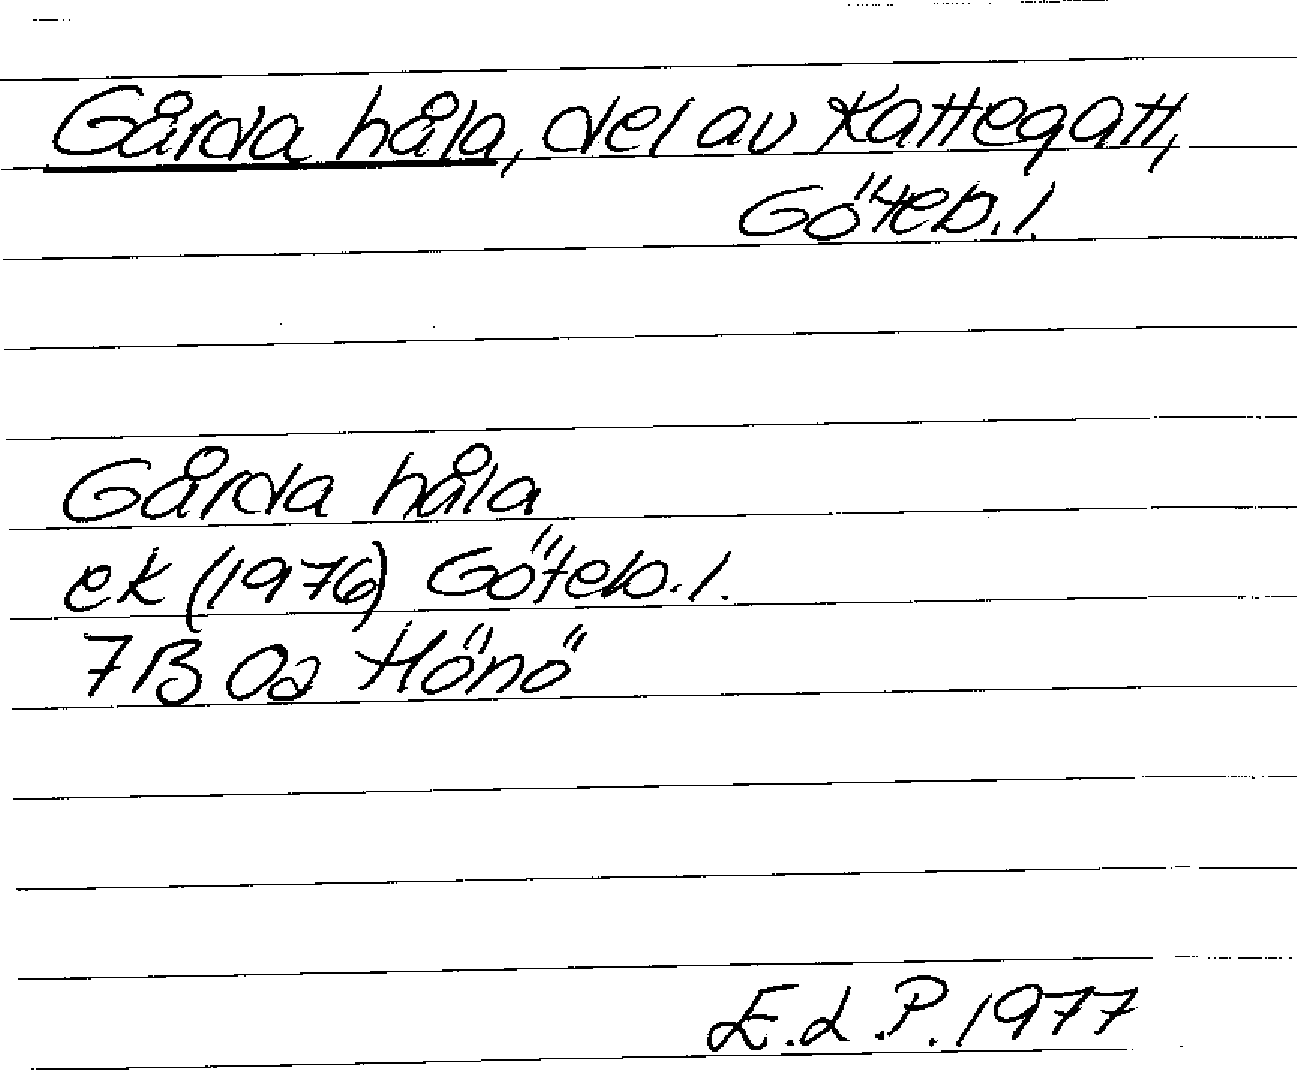 Gårda håla, del av Kattegatt,
Göteb. l.
Gårda håla
ek (1976) Göteb. l.
7B 0a Hönö
E.L.P. 1977